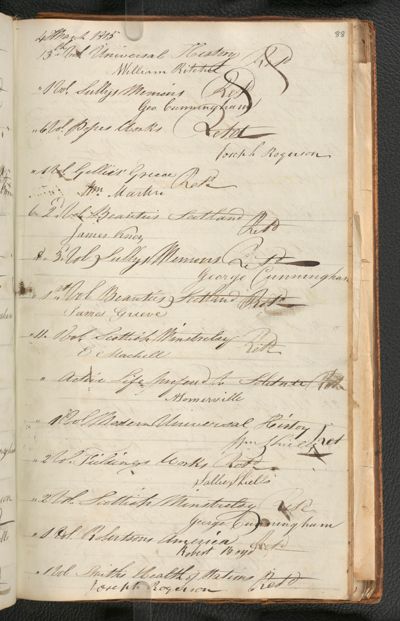 88
4th May 1815
13th Vol Universal History Retd
William Ritchie
" 1 Vol Sullys Memoirs Retd
Geo Cunningham
" 6 Vol Popes Works Retd
Joseph Rogerson
" 1 Vol Gillies Greece Retd
Wm Martin
6 2d Vol Beauties Scotland Retd
James
8 3d Vol Sullys Memoirs Retd
George Cunningham
" 1st Vol Beauties Scotland Retd
James Grieve
11 Vol Scottish Minstrelsy Retd
" Active Life to Solitude
Somerville
" 1st Vol Modern Universal History
Wm Shiells Retd
" 2 Vol Fieldings Works Retd
Shiells
" 2 Vol Scottish Minstrelsy Retd
George Cunningham
" 1 Vol Robertsons America Retd
Robert
" 1 Vol Smiths Wealth of Nations Retd
Joseph Rogerson